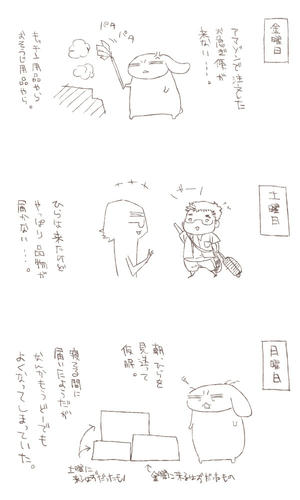 金曜日
アマゾンで注文した
お急ぎ便が
来ない…。
パタ
パタ
キッチン用品やら
おそうじ用品やら。
土曜日
ひらは来たけど
やっぱり品物が
届かない…。
日曜日
朝、ひらを
見送って
仮眠。
寝てる間に
届いたようだが
なんかもうどーでも
よくなってしまっていた。
土曜に
来るはずだったもの
金曜に来るはずだったもの